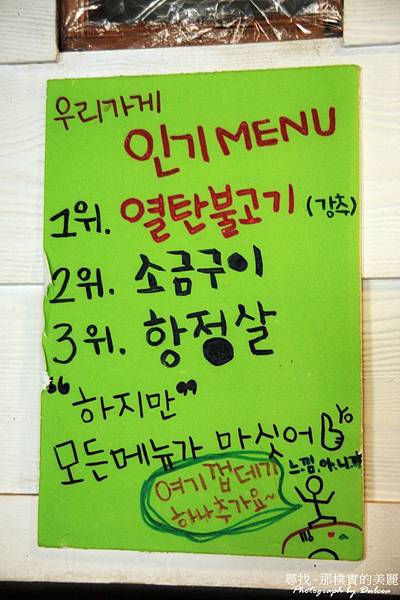 우리가게
인기MENU
1위. 열탄불고기 (강추)
2위. 소금구이
3위. 항정살
"하지만"
모든메뉴가 마싯어
느낌.아.니까
여기껍데기
하나추가요~
尋找-那樸實的美麗
Photograph by Dulcea